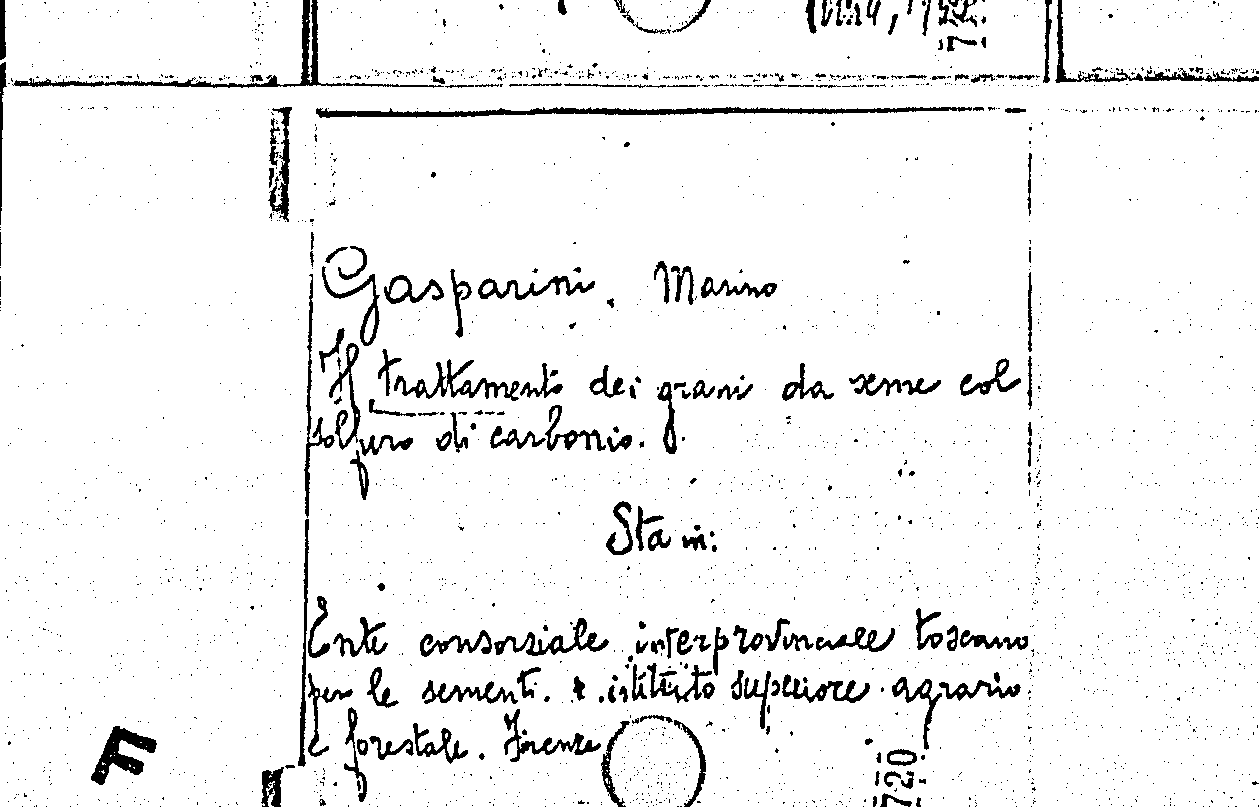 Gasparini, Marino
Il trattamento dei grani da seme col
solfuro di carbonio.
Sta in:
Ente consorziale interprovinciale toscano
per le sementi. e istituto superiore agrario
e forestale. Firenze
F
720